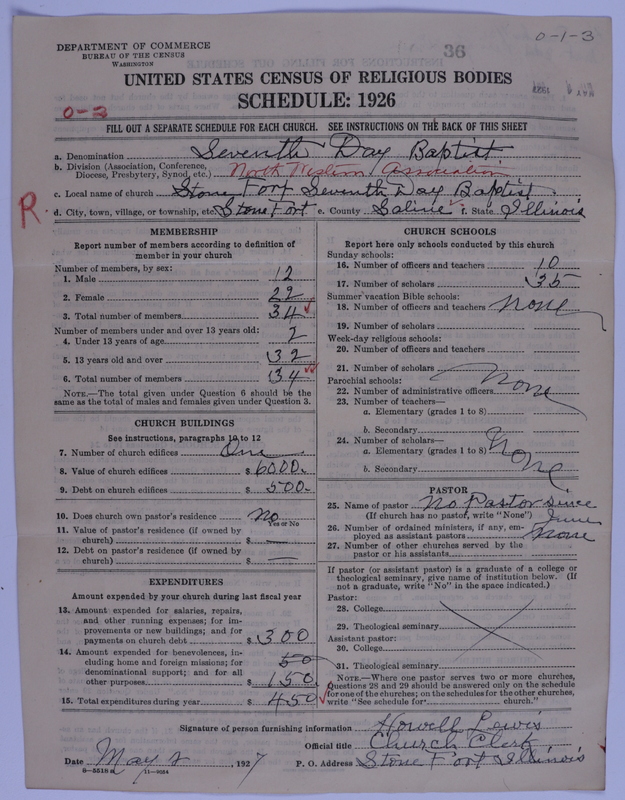 0-1-3
DEPARTMENT OF COMMERCE
BUREAU OF THE CENSUS
WASHINGTON
36
UNITED STATES CENSUS OF RELIGIOUS BODIES
SCHEDULE: 1926
0-3
FILL OUT A SEPARATE SCHEDULE FOR EACH CHURCH. SEE INSTRUCTIONS ON THE BACK OF THIS SHEET
a. Denomination Seventh Day Baptist
b. Division (Association, Conference, Diocese, Presbytery, Synod, etc.) North Western Association
c. Local name of church Stone Fort Seventh Day Baptist
R. d. City, town, village, or township, etc. Stone Fort e. County Saline f. State Illinois
MEMBERSHIP
Report number of members according to definition of
member in your church
Number of members, by sex:
1. Male 12
2. Female 22
3. Total number of members 34
Number of members under and over 13 years old:
4. Under 13 years of age 2
5. 13 years old and over 32
6. Total number of members 34
NOTE.—The total given under Question 6 should be the
same as the total of males and females given under Question 3.
CHURCH BUILDINGS
See instructions, paragraphs 10 to 12
7. Number of church edifices One
8. Value of church edifices $ 6000.
9. Debt on church edifices $ 500.
10. Does church own pastor's residence No
Yes or No
11. Value of pastor's residence (if owned by
church) $ —
12. Debt on pastor's residence (if owned by
church) $ —
EXPENDITURES
Amount expended by your church during last fiscal year
13. Amount expended for salaries, repairs,
and other running expenses; for im-
provements or new buildings; and for
payments on church debt $ 300
14. Amount expended for benevolences, in-
cluding home and foreign missions; for 50
denominational support; and for all
other purposes $ 150
15. Total expenditures during year $ 450
CHURCH SCHOOLS
Report here only schools conducted by this church
Sunday schools:
16. Number of officers and teachers 10
17. Number of scholars 35
Summer vacation Bible schools:
18. Number of officers and teachers none
19. Number of scholars
Week-day religious schools:
20. Number of officers and teachers
21. Number of scholars
none
Parochial schools:
22. Number of administrative officers
23. Number of teachers—
a. Elementary (grades 1 to 8)
b. Secondary
24. Number of scholars—
a. Elementary (grades 1 to 8)
none
b. Secondary
PASTOR
25. Name of pastor No Pastor since
(If church has no pastor, write "None") June
26. Number of ordained ministers, if any, em-
ployed as assistant pastors none
27. Number of other churches served by the
pastor or his assistants
If pastor (or assistant pastor) is a graduate of a college or
theological seminary, give name of institution below. (If
not a graduate, write "No" in the space indicated.)
Pastor:
28. College
29. Theological seminary
Assistant pastor:
30. College
31. Theological seminary
NOTE.—Where one pastor serves two or more churches,
Questions 28 and 29 should be answered only on the schedule
for one of the churches; on the schedules for the other churches,
write "See schedule for church."
Signature of person furnishing information Howell Lewis
Official title Church Clerk
Date May 2, 1927 P. O. Address Stone Fort Illinois
8—5518 a 11—9054